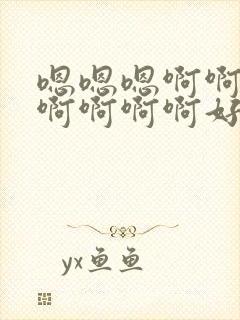 嗯嗯嗯啊啊
啊啊啊啊好
yx鱼鱼